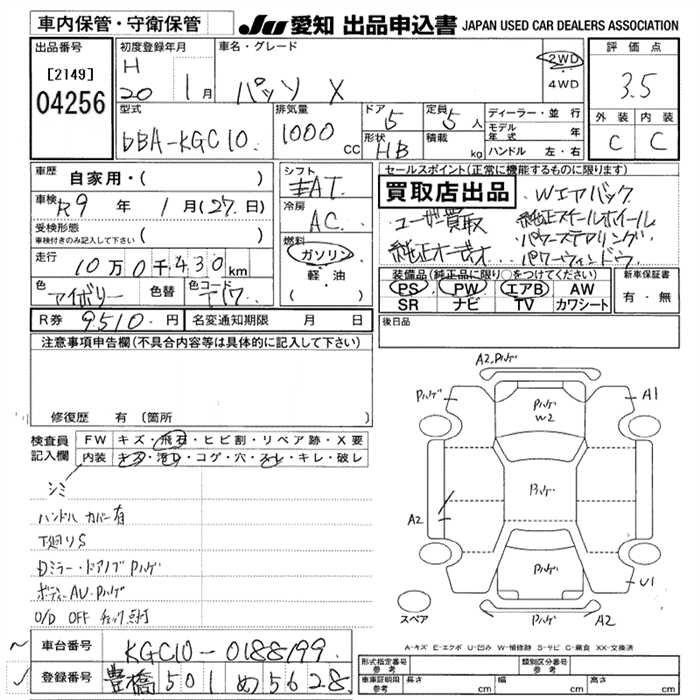 車内保管・守衛保管
JU 愛知 出品申込書 JAPAN USED CAR DEALERS ASSOCIATION
出品番号
[2149]
04256
初度登録年月
H
20 1月
車名・グレード
パッソ X
2WD
4WD
評価点
3.5
外装 内装
C C
型式
DBA-KGC10
排気量
1000 cc
ドア 5
形状 HB
定員 5 人
積載 kg
ディーラー・並行
モデル年式 年
ハンドル 左・右
車歴 自家用・( )
車検 R9 年 1月(27.日)
受検形態
車検付きのみ記入して下さい ( )
走行 10万0千430km
色 アイボリー 色替 色コード T17
シフト
AT
冷房
AC
燃料
ガソリン
軽・油
( )
R券 9510.円
名変通知期限 月 日
セールスポイント(正常に機能するものに限ります)
買取店出品
Wエアバック
ユーザー買取 純正スチールホイール
パワーステアリング
純正オーディオ パワーウィンドウ
装備品(純正品に限り○をつけてください)
PS PW エアB AW
SR ナビ TV カワシート
新車保証書
有・無
後日品
注意事項申告欄(不具合内容等は具体的に記入して下さい)
修復歴 有 (箇所
検査員記入欄
FW キズ・飛石・ヒビ割・リペア跡・X要
内装 キズ・汚レ・コゲ・穴・スレ・キレ・破レ
シミ
ハンドルカバー有
下廻りS
Dミラー・ドアノブPハゲ
ボディーAU・Pハゲ
O/D OFF チェック点灯
A2,Pハゲ
Pハゲ
Pハゲ
W2
A1
Pハゲ
A2
Pハゲ
U1
Pハゲ
A2
スペア
A-キズ E-エクボ U-凹み W-補修跡 S-サビ C-腐食 XX-交換済
車台番号 KGC10-0188199
登録番号 豊橋 501 め 5628
形式指定番号 類別区分番号
車庫証明用参考 長さ cm 幅 cm 高さ cm